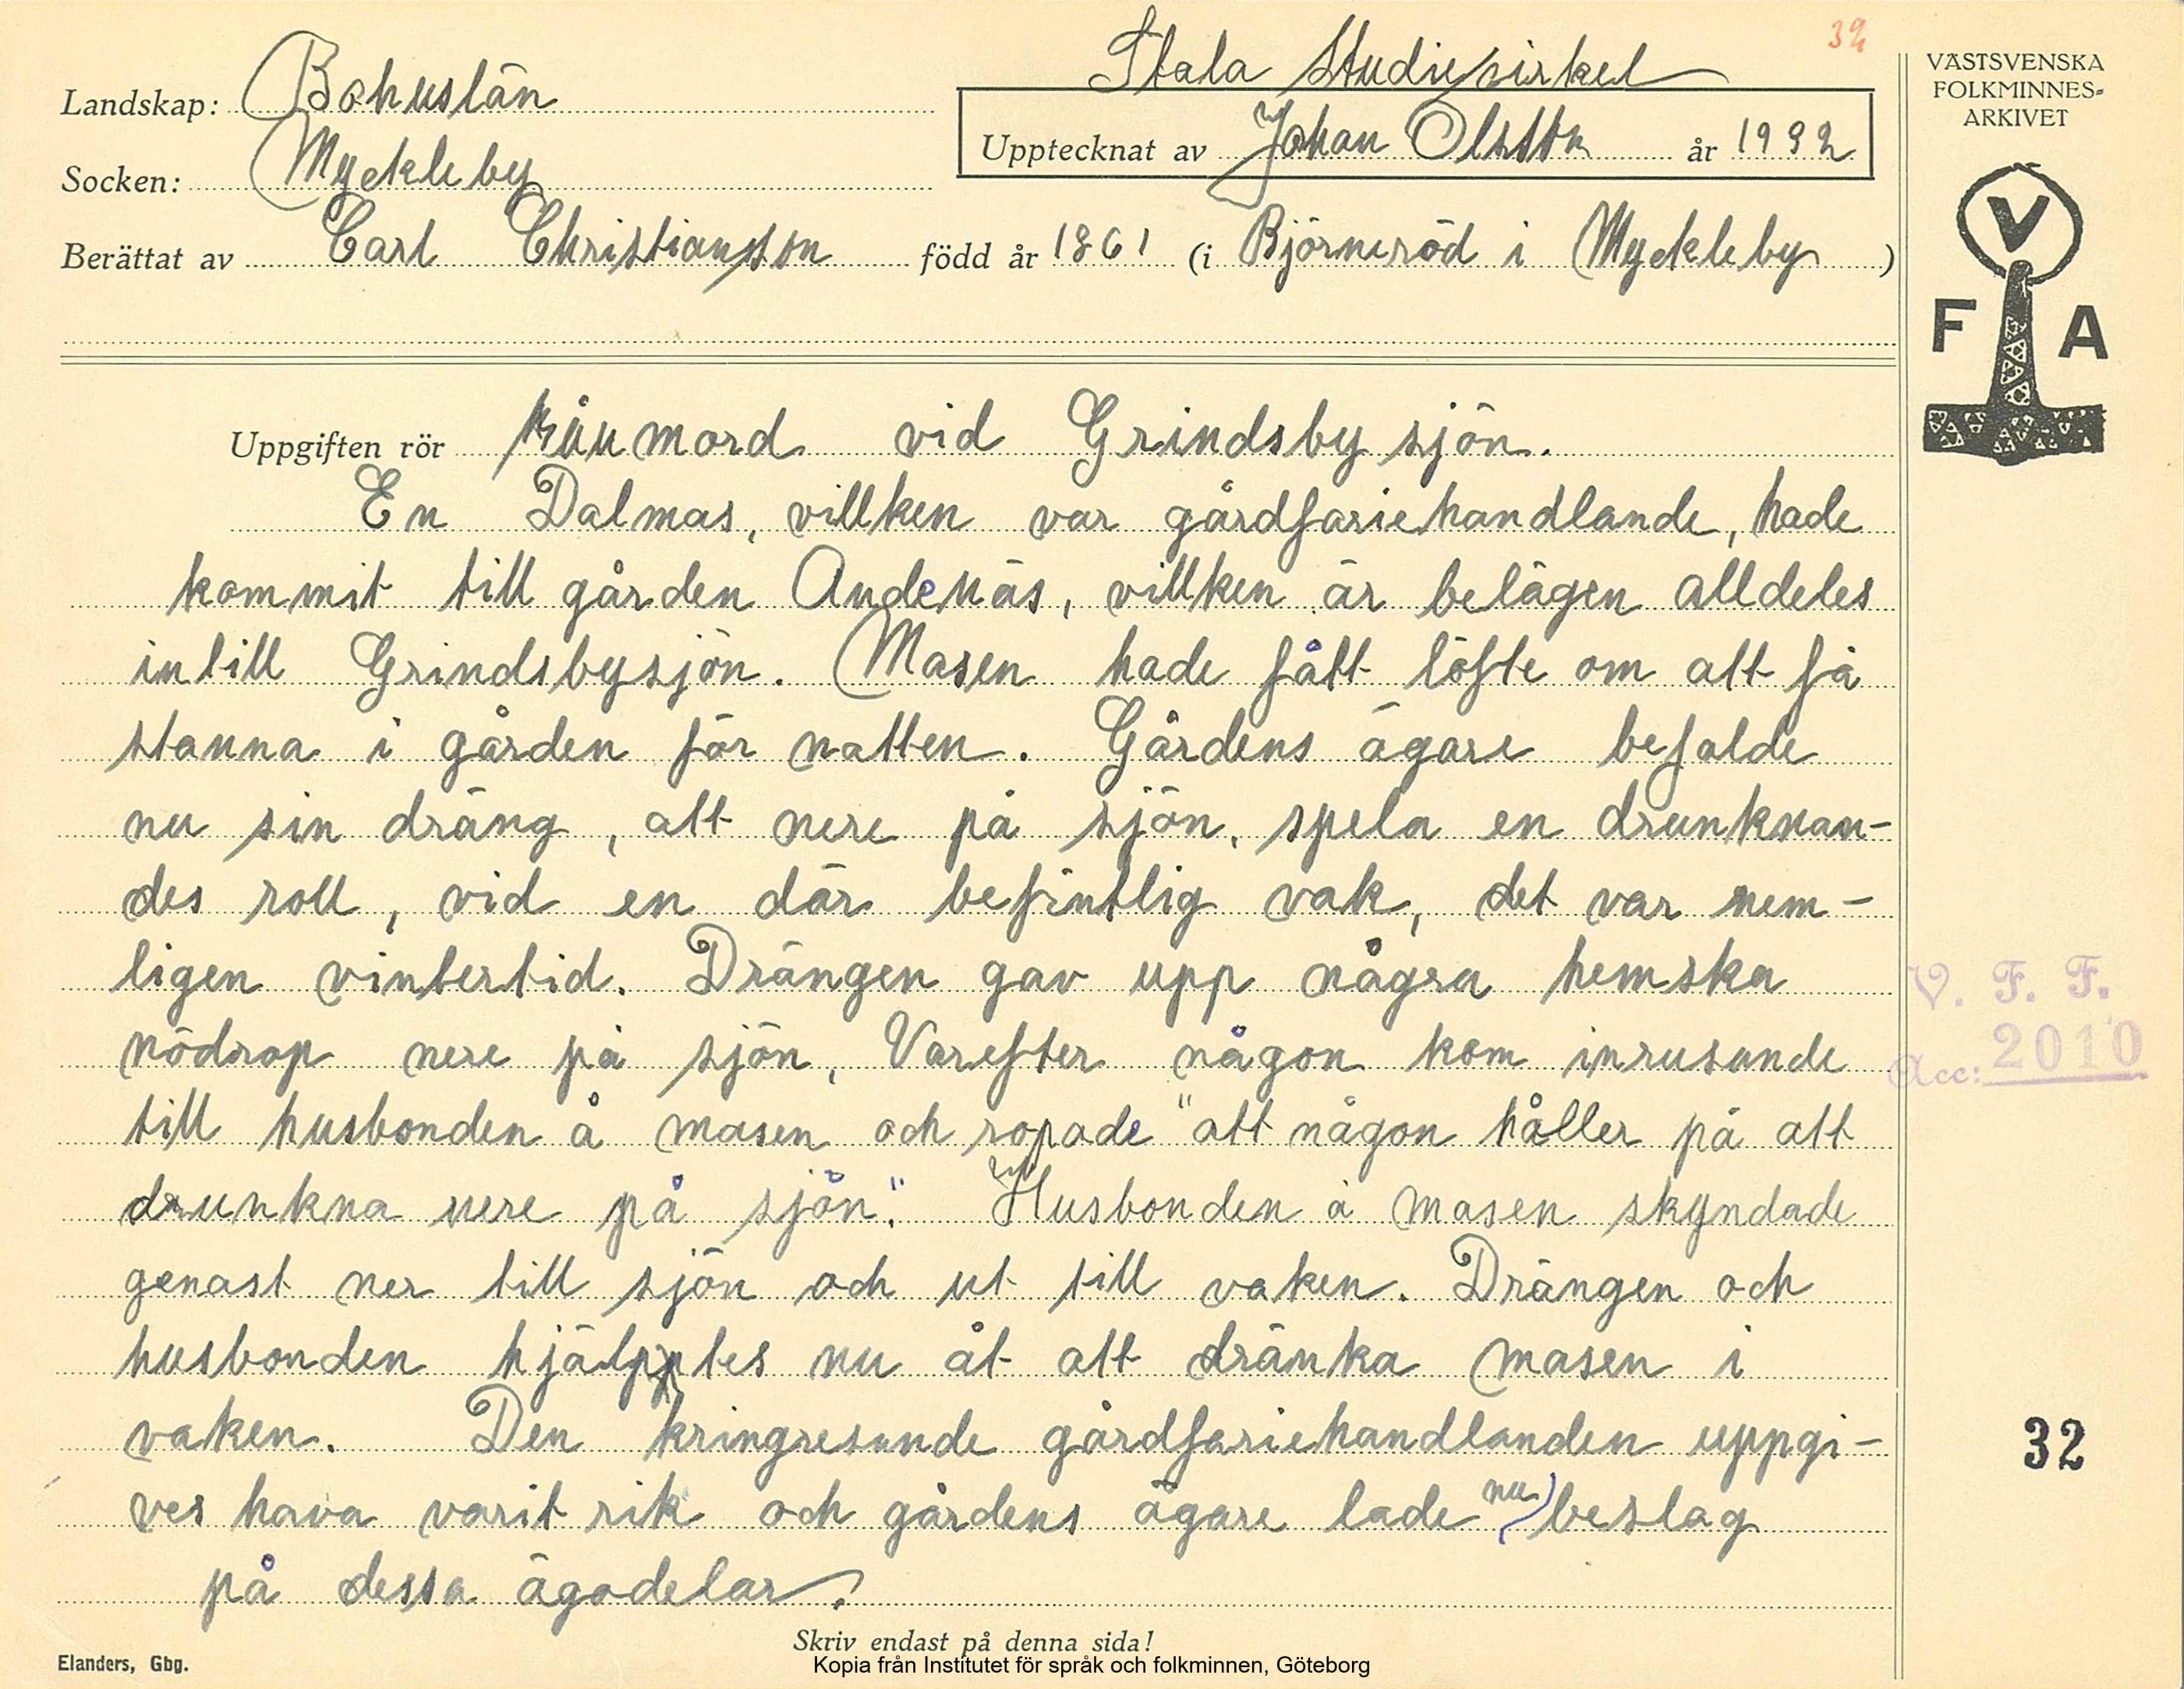 32
Stala Studiecirkel
Landskap: Bohuslän
Upptecknat av Johan Olsson år 1932
Socken: Myckleby
Berättat av Carl Christiansson född år 1861 (i Björneröd i Myckleby)
VÄSTSVENSKA
FOLKMINNES=
ARKIVET
V
F A
Uppgiften rör Rånmord vid Grindsbysjön.
En Dalmas, villken var gårdfariehandlande, hade
kommit till gården Andenäs, villken är belägen alldeles
intill Grindsbysjön. Masen hade fått löfte om att få
stanna i gården för natten. Gårdens ägare befalde
nu sin dräng, att nere på sjön, spela en drunknan-
des roll, vid en där befintlig vak, det var nem-
ligen vintertid. Drängen gav upp några hemska
nödrop nere på sjön, Varefter någon kom inrusande
till husbonden å masen och ropade "att någon håller på att
drunkna nere på sjön." Husbonden å masen skyndade
genast ner till sjön och ut till vaken. Drängen och
husbonden hjälptes nu åt att dränka masen i
vaken. Den kringresande gårdfariehandlanden uppgi-
ves hava varit rik och gårdens ägare lade nu beslag
på dessa ägodelar.
V. F. F.
Acc: 2010
32
Skriv endast på denna sida!
Elanders, Gbg.
Kopia från Institutet för språk och folkminnen, Göteborg